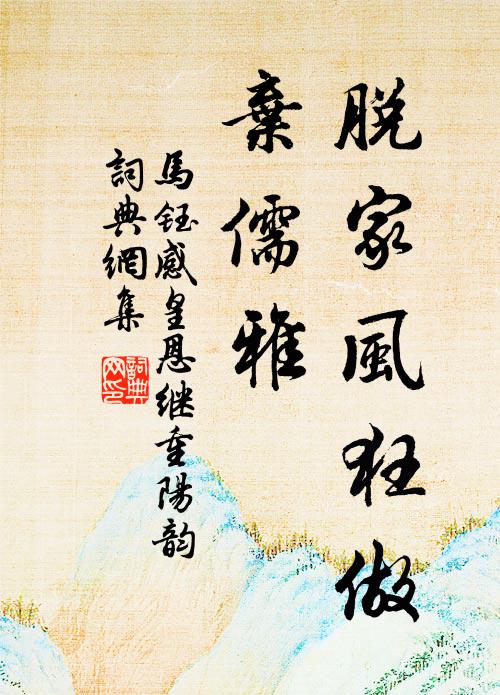 脱家風狂做
棄儒雅
馬鈺感皇恩继重陽韵
詞典網集
詞典
网印